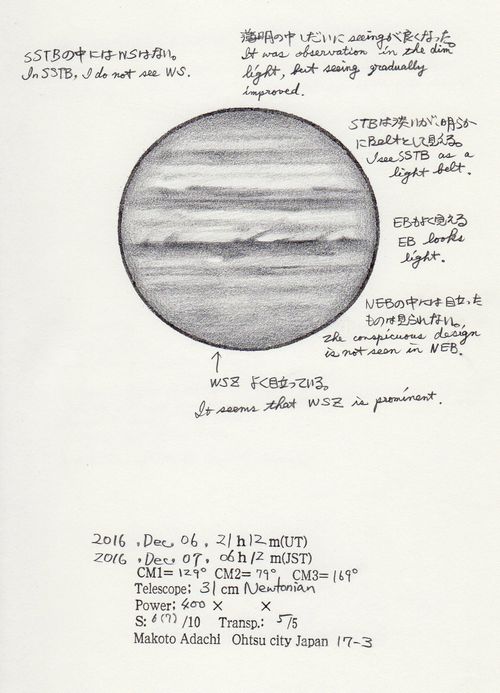 SSTBの中にはWSはない。
In SSTB, I do not see WS.
薄明の中しだいにseeingが良くなった。
It was observation in the dim
light, but seeing gradually
improved.
STBは淡いが、明らか
にBeltとして見える。
I see SSTB as a
light belt.
EBもよく見える
EB looks
light.
NEBの中には目立った
ものは見られない。
The conspicuous design
is not seen in NEB.
↑
WSZ よく目立っている。
It seems that WSZ is prominent.
2016 ,Dec 06 , 21 h 12 m(UT)
2016 ,Dec 07 , 06 h 12 m(JST)
CM1= 129° CM2= 79° , CM3= 169°
Telescope; 31 cm Newtonian
Power; 400 × ×
S: 6(7) /10 Transp.: 5/5
Makoto Adachi Ohtsu city Japan 17-3